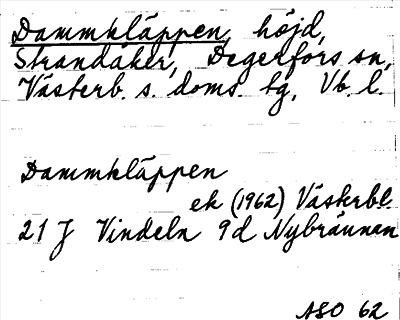 Dammkläppen, höjd,
Strandåker, Degerfors sn,
Västerb. s. doms. tg, Vb. l.
Dammkläppen
ek (1962) Västerbl.
21 J Vindeln 9d Nybrännan
ASO 62